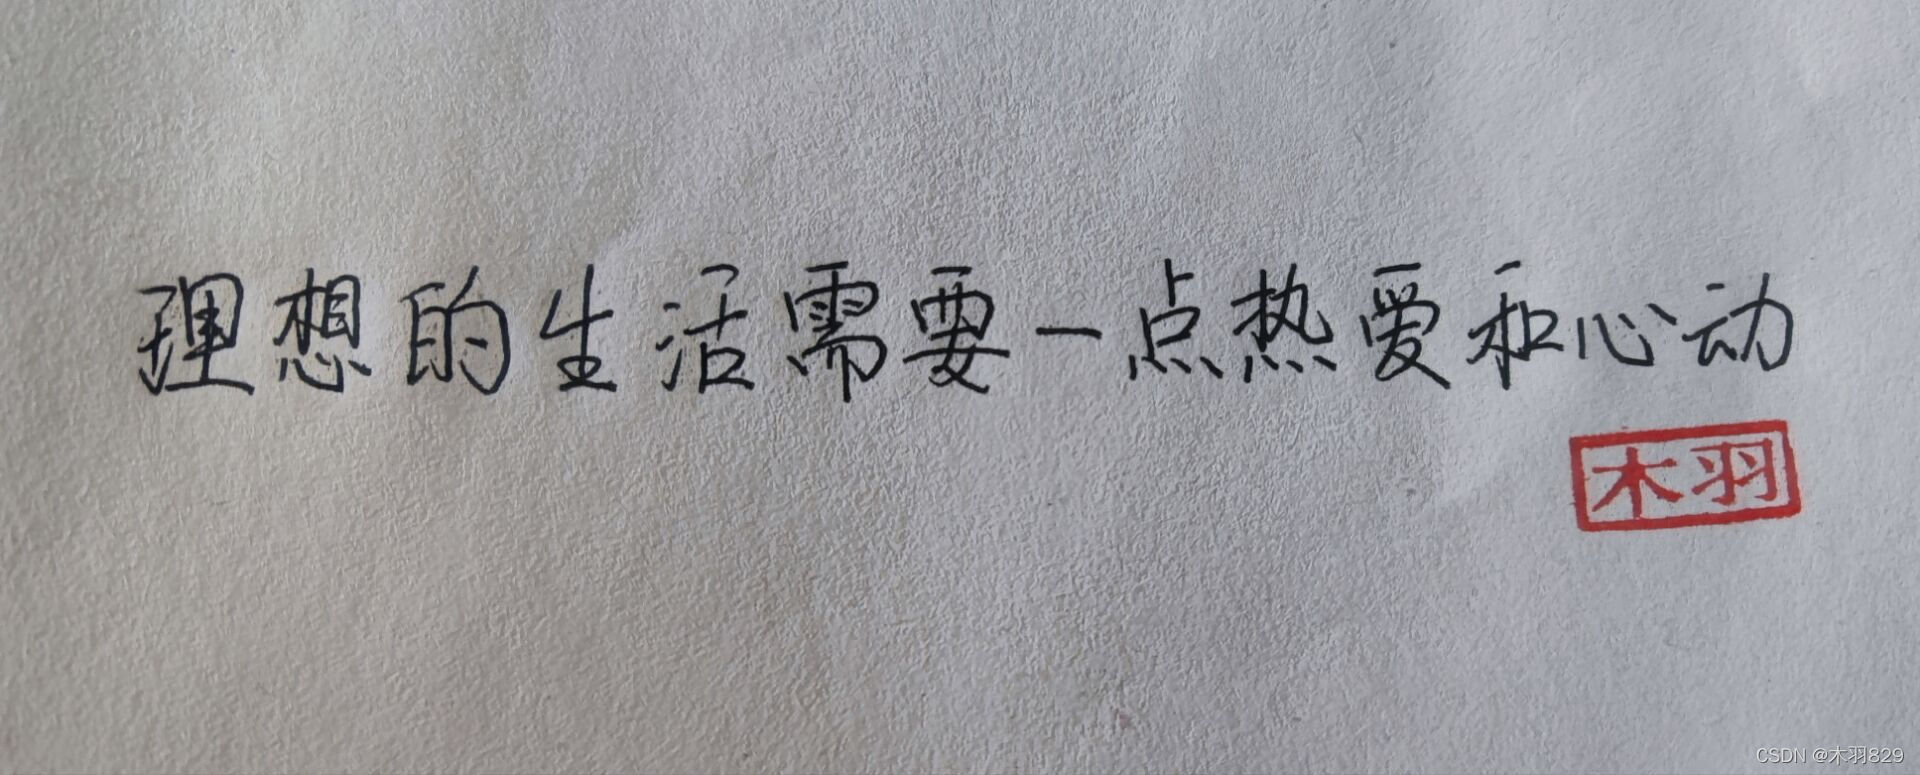 理想的生活需要一点热爱和心动
木羽
CSDN @木羽829